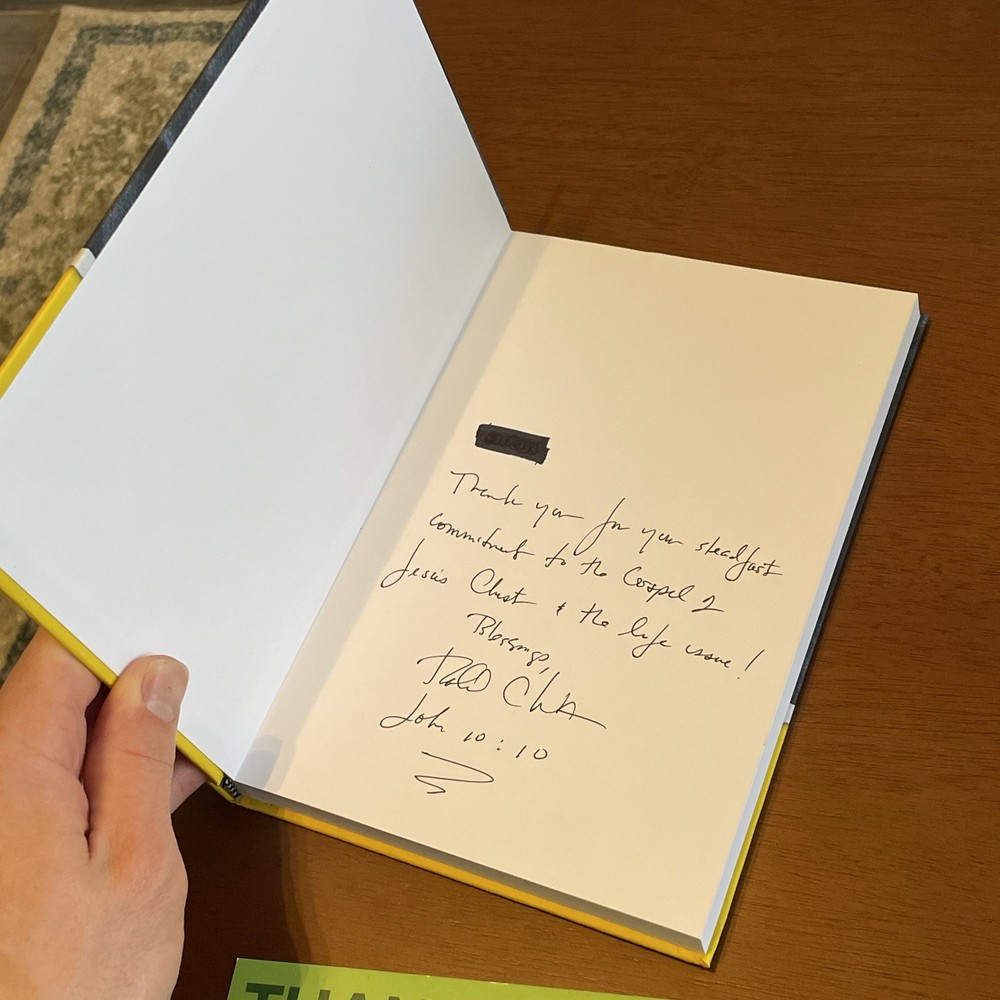 Thank you for your steadfast
commitment to the Gospel 2
Jesus Christ & the life issue!
Blessings,
John 10:10
THAN